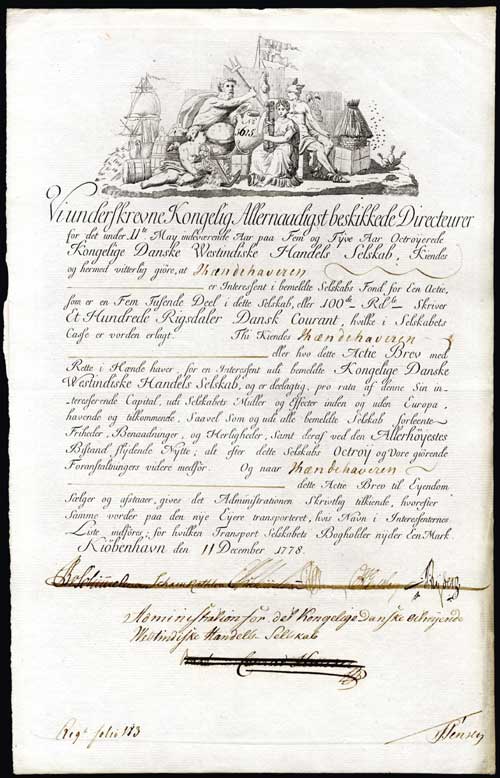 5615
Vi underskrevne Kongelig Allernaadigst beskikkede Directeurer
for det under 11te May indeværende Aar paa Fem og Tyve Aar Octroyerede
Kongelige Danske Westindiske Handels Selskab, Kiendes
og hermed vitterlig giöre, at Ihændehaveren
er Interesent i bemeldte Selskabs Fond for Een Actie,
som er en Fem Tusende Deel i dette Selskab, eller 100de Rdlr Skriver
Et Hundrede Rigsdaler Dansk Courant, hvilke i Selskabets
Casse er vorden erlagt. Thi Kiendes Ihændehaveren
eller hvo dette Actie Brev med
Rette i Hænde haver, for en Interesent udi bemeldte Kongelige Danske
Westindiske Handels Selskab, og er deelagtig, pro rata af denne Sin in-
teresserende Capital, udi Selskabets Midler og Effecter inden og uden Europa,
havende og tilkommende, Saavel Som og udi alle bemeldte Selskab forleente
Friheder, Benaadninger, og Herligheder, Samt deraf ved den Allerhöyestes
Bistand flydende Nytte; alt efter dette Selskabs Octroy og Dore giörende
Foranstaltningers videre medför. Og naar Ihændehaveren
dette Actie Brev til Eyendom
Sælger og afstaaer, gives det Administrationen Skrivtlig tilkiende, hvorefter
Samme vorder paa den nye Ejere transporteret, hvis Navn i Interesenternes
Liste indföres; for hvilken Transport Selskabets Bogholder nyder Een Mark.
Kiöbenhavn den 11 December 1778.
Administration for det Kongelige Danske octroijerede
Westindiske Handels Selskab
Regt folio 113